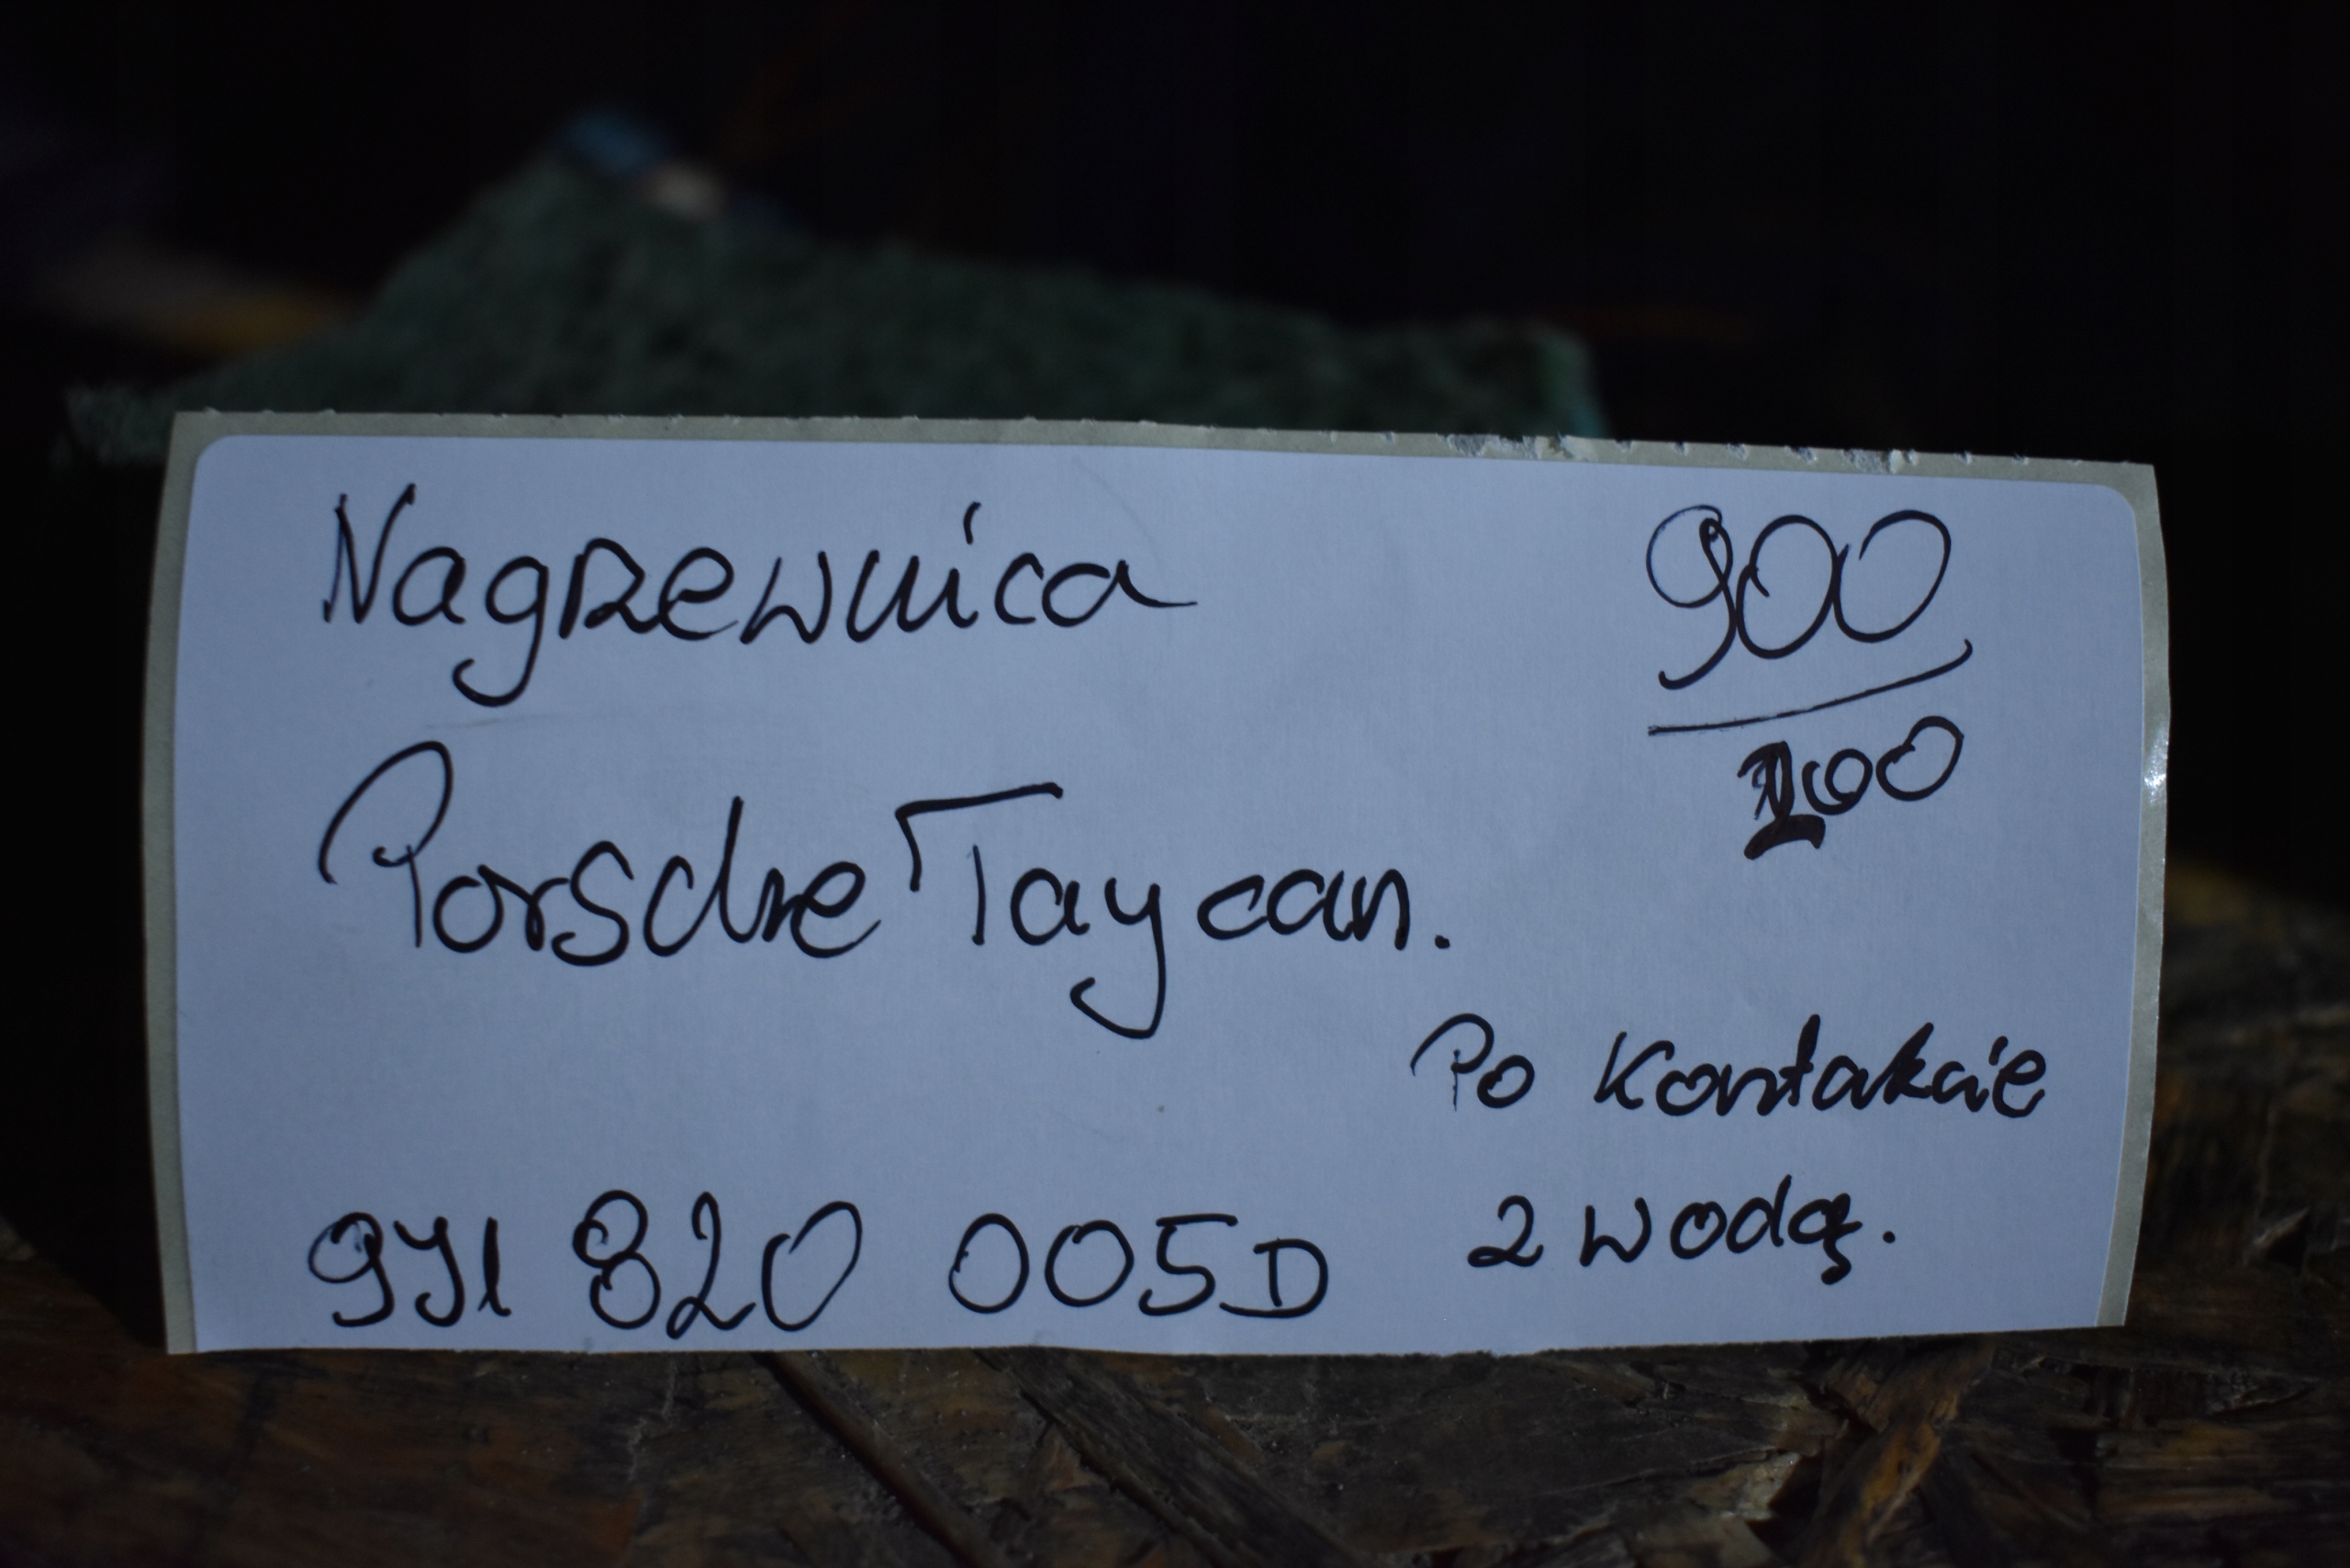 Nagrzewnica
900
200
Porsche Taycan.
Po kontakcie
z wodą.
9J1 820 005D